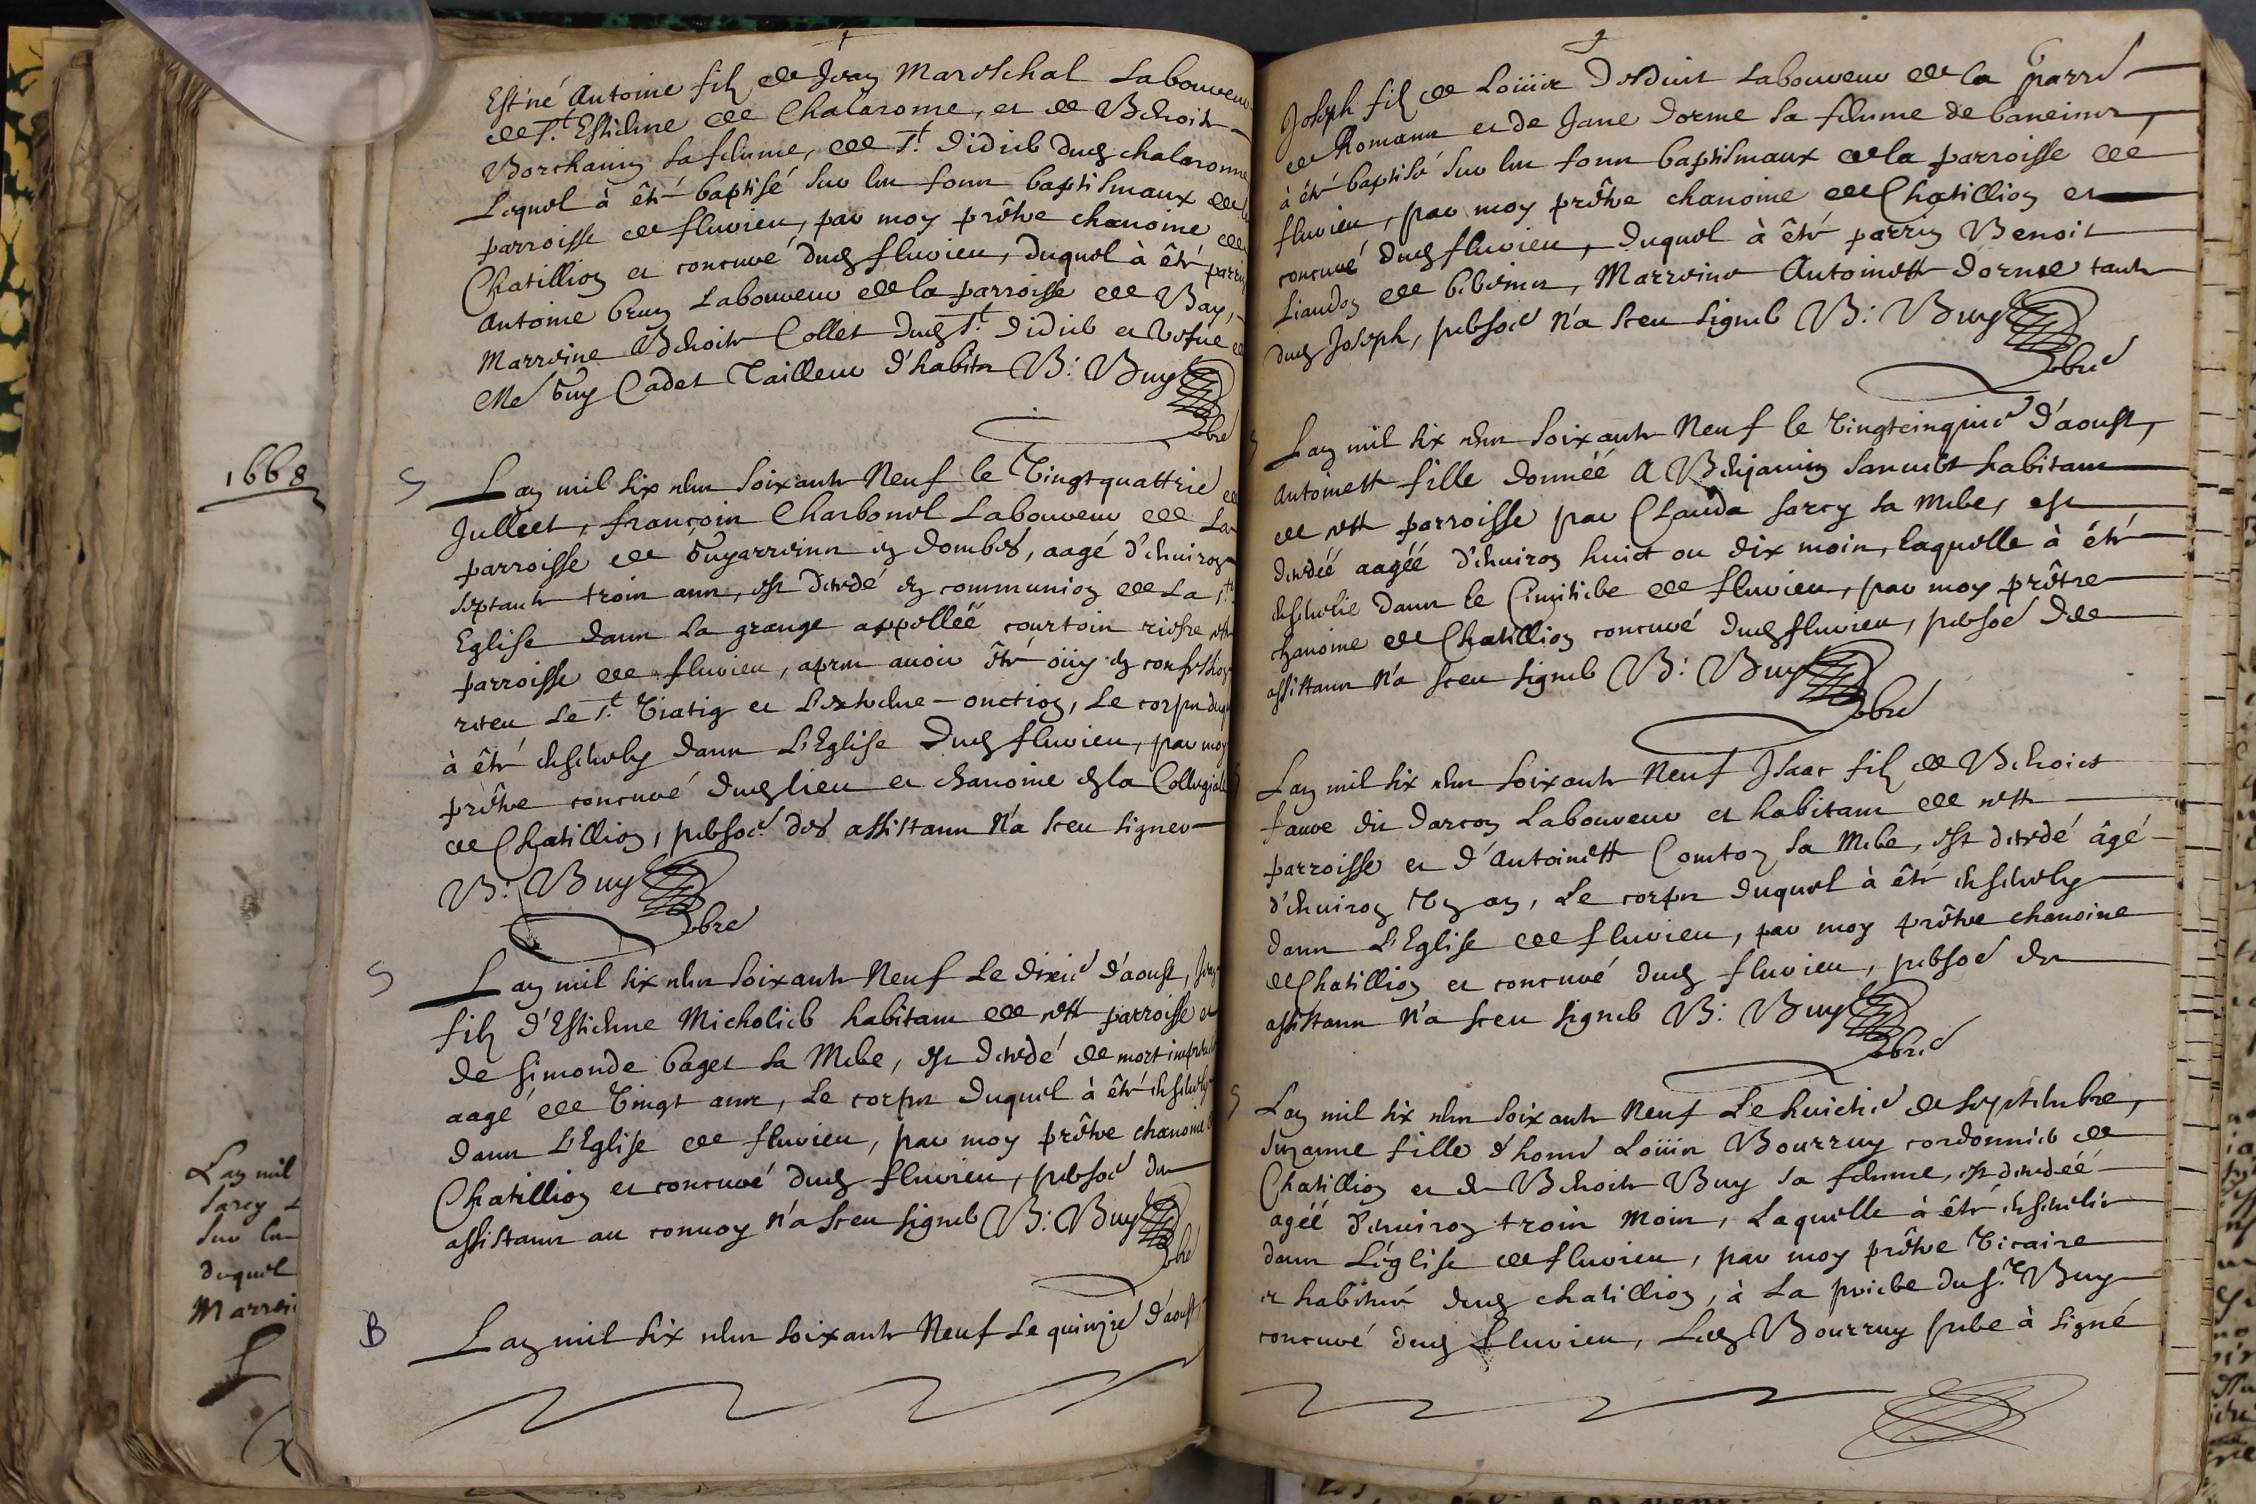 †
Est né Antoine filz de Jean Mareschal Laboureur
de St. Estienne de Chalarone, et de Benoite
Borchanin sa femme, de St. Didier dud chalaronne
Lequel à êté baptisé sur les fonts baptismaux de la
parroisse de fluvieu, par moy prêtre chanoine de
Chatillion et concuré dud fluvieu, duquel à êté parrin
Antoine brun Laboureur de la parroisse de Bay,
Marreine Benoite Collet dud St. Didier et vefue de
Me Guy Cadet Tailleur d'habits B: Buy
pbre
S
Lan mil six cens soixante Neuf le Vingtquattrie de
Jullet, françois Charbonel Laboureur de La
parroisse de Guyarreins en dombes, aagé d'enuiron
septante trois ans, est décedé en communion de La Ste
Eglise dans la grange appelléé courtois riere cette
parroisse de fluvieu, apres auoir êté oüy en confession
receu Le St. Viatig et L'extreme-onction, Le corps duquel
à êté enseuely dans L'Eglise dud fluvieu, par moy
prêtre concuré dud lieu et chanoine en la Collegiale
de Chatillion, presoe des assistans N'a sceu signer
B: Buy
pbre
S
Lan mil six cens soixante Neuf Le dixie d'aoust, Jean
filz d'Estienne Micholier habitant de cette parroisse et
de simonde baget sa Mere, est décedé de mort impreueüe
aagé de Vingt ans, Le corps duquel à êté enseuely
dans L'Eglise de fluvieu, par moy prêtre chanoine de
Chatillion et concuré dud fluvieu, presoe des
assistans au conuoy n'a sceu signer B: Buy
pbre
B
Lan mil six cens soixante Neuf Le quinzie d'aoust
1668
Lan mil
sarcy
sur les
duquel
Marrei
†
6
Joseph filz de Loüis Desduit Laboureur de la parre
de Romans et de Jane dorme sa femme de baneins,
à êté baptisé sur les fonts baptismaux de la parroisse de
fluvieu, par moy prêtre chanoine de Chatillion et
concuré dud fluvieu, duquel à êté parrin Benoit
Liaudon de biboins, Marreine Antoinette dorme tante
dud Joseph, presoe N'a sceu signer B: Buy
pbre
S
Lan mil six cens soixante Neuf le Vingtcinquie d'aoust,
Antoinette fille donnéé A Benjamin sanuert habitant
de cette parroisse par Clauda sarcy sa Mere, est
décedéé aagéé d'enuiron huict ou dix mois, laquelle à êté
enseuelie dans le Cimitiere de fluvieu, par moy prêtre
chanoine de Chatillion concuré dud fluvieu, presoe des
assistans N'a sceu signer B: Buy
pbre
Lan mil six cens soixante Neuf Isaac filz de Benoict
faure dit darcon Laboureur et habitant de cette
parroisse et d'Antoinette Comton sa Mere, est décedé âgé
d'enuiron Un an, Le corps duquel à êté enseuely
dans L'Eglise de fluvieu, par moy prêtre chanoine
de Chatillion et concuré dud fluvieu, presoe des
assistans N'a sceu signer B: Buy
pbre
S
Lan mil six cens soixante Neuf Le huictie de septembre,
Suzanne fille d'honne Loüis Bourruy cordonnier de
Chatillion et de Benoite Buy sa femme, est décedéé
agéé d'enuiron trois Mois, Laquelle à êté enseuelie
dans L'église de fluvieu, par moy prêtre Vicaire
et habitué dud chatillion, à La priere du sr. Buy
concuré dud fluvieu, Led Bourruy pere à signé